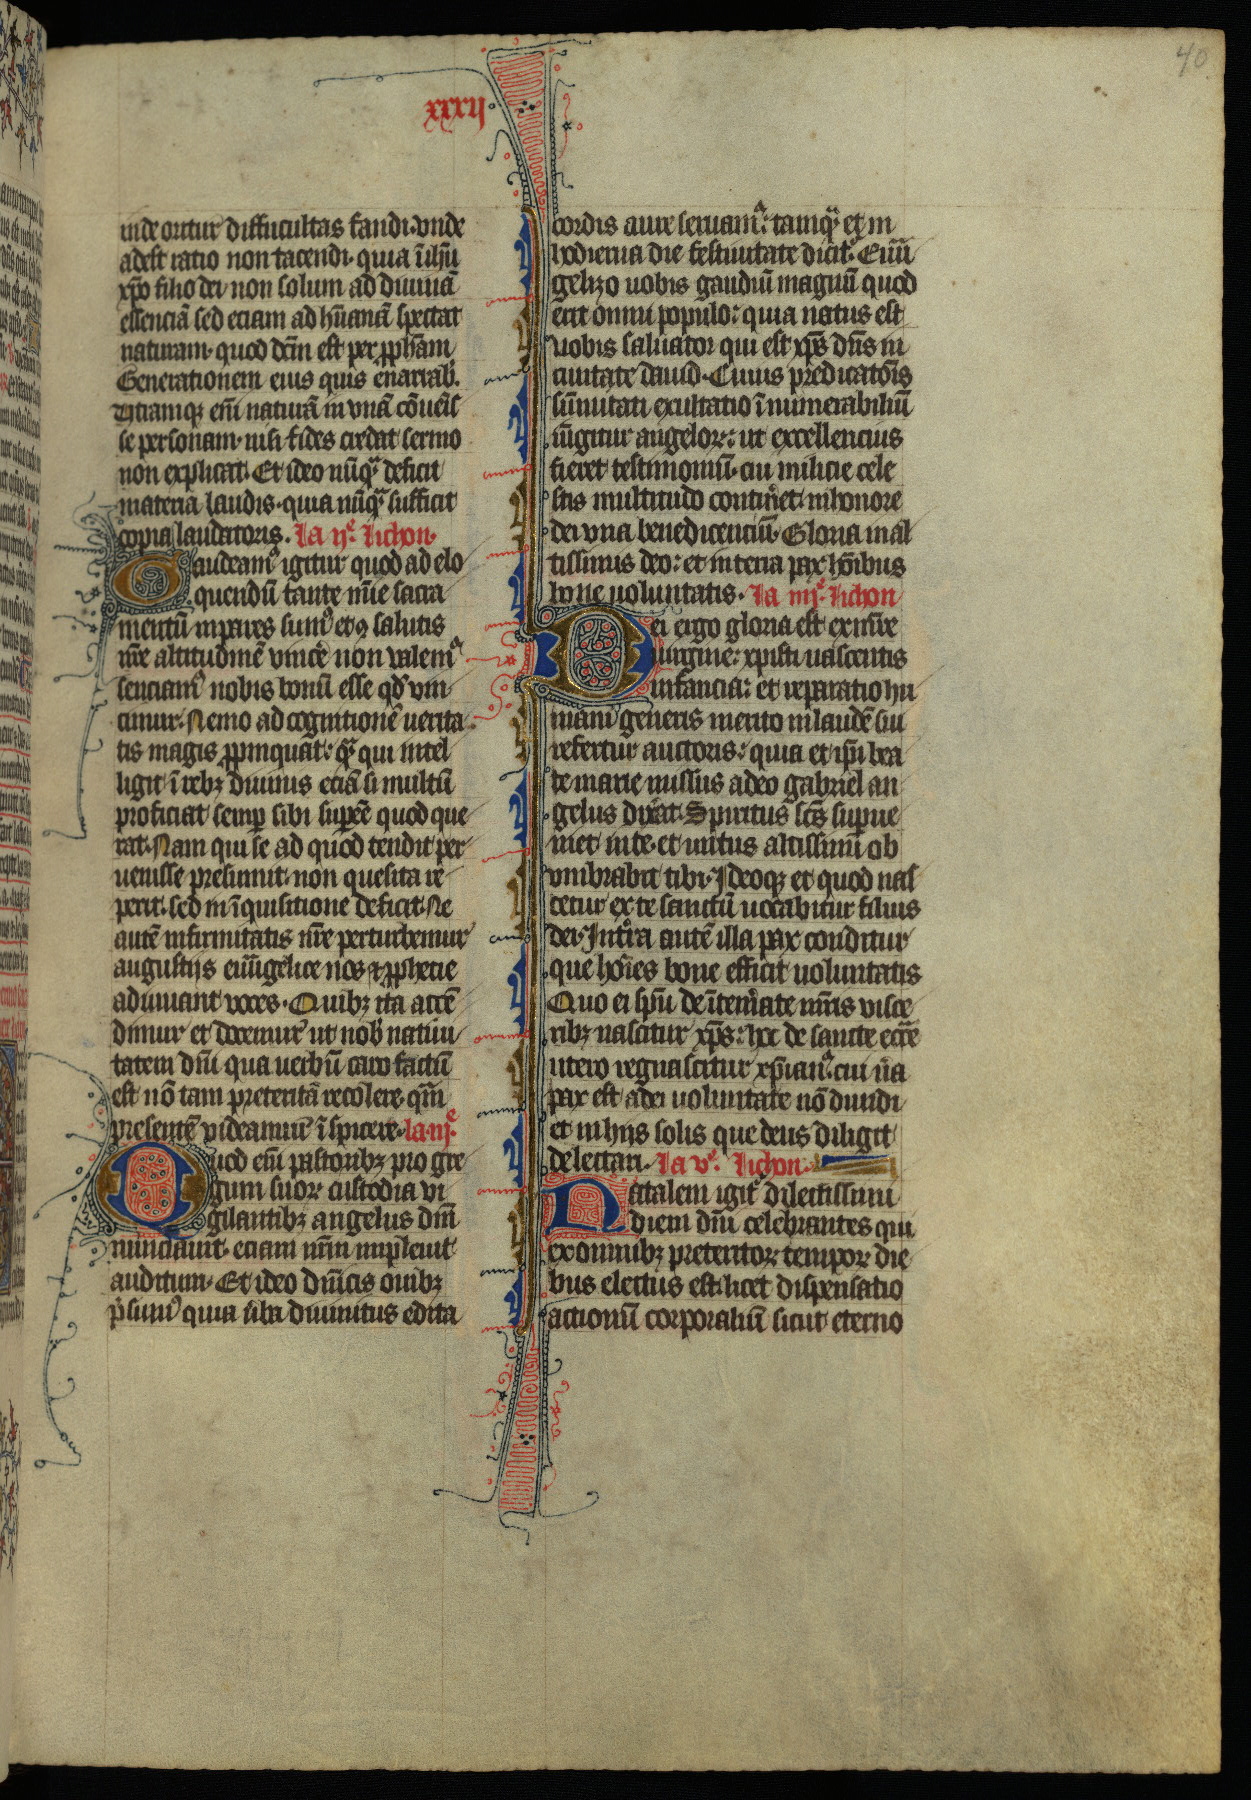 40
xxxij
inde oritur difficultas fandi. vnde
adest ratio non tacendi. quia ī ihū
xpō filio dei non solum ad diuinā
essenciā sed eciam ad hūanā spectat
naturam. quod dc̄m est per ꝓph̄am
Generationem eius quis enarrab.
Utramqꝫ em̄ naturā in vnā cōuēis
se personam. nisi fides credat sermo
non explicat. Et ideo nūqᷓ deficit
materia laudis. quia nūqᷓ sufficit
copia laudatoris. La ijᵉ. Lichon.
Gaudeamꝰ igitur quod ad elo
quendū tante mīe sacra
mentū inpares sumꝰ et ꝯ salutis
nr̄e altitudinē vincē non valemꝰ
senciamꝰ nobis bonū esse qd̓ vin
cimur. Nemo ad cognitionē uerita
tis magis ꝓpinquat. qᷓ qui intel
ligit ī rebꝫ diuinis eciā si multū
proficiat semꝑ sibi suꝑeē quod que
rat. Nam qui se ad quod tendit per
uenisse presumit. non quesita re
perit. sed in īquisitione deficit. Ne
autē infirmitatis nr̄e perturbemur
augustijs euūgelice nos ⁊ ꝓphetie
adiuuant uoces. Quibꝫ ita accē
dimur et docemur ut nob̓ natiui
tatem dn̄i qua uerbū caro factū
est nō tam preteritā recolere. qm̄
presentē videamur īspicere. La. iijᵉ
Quod em̄ pastoribꝫ pro gre
gum suoꝝ custodia vi
gilantibꝫ angelus dn̄i
nunciauit. eciam nr̄m impleuit
auditum. Et ideo dn̄icis ouibꝫ
p̄sumꝰ quia uerba diuinitus edita
cordis aure seruamꝰ: tamqᷓ et in
hodierna die festiuitate dicitᷣ. Euū
gelizo uobis gaudiū magnū quod
erit omni populo: quia natus est
uobis saluator qui est xp̄s dn̄s in
ciuitate dauid. Cuius predicatōis
sūmitati exultatio īnumerabiliū
iūgitur angeloꝝ: ut excellencius
fieret testimoniū. cui milicie cele
stis multitudo contin̄et. in honore
dei vna benedicenciū. Gloria in al
tissimis deo: et in terra pax hōibus
bone uoluntatis. La iiijᵉ. Lichon
Dei ergo gloria est ex mr̄e
uirgine: xpisti nascentis
infancia: et reparatio hu
mani generis merito in laudē su
i refertur auctoris: quia et ip̄i bea
te marie missus a deo gabriel an
gelus dixʼat. Spiritus sc̄s superue
niet in te. et uirtus altissimi ob
vmbrabit tibi. Ideoqꝫ et quod nas
cetur ex te sanctū uocabitur filius
dei. In tr̄a autē illa pax conditur
que hōies bone efficit uoluntatis
Quo ei sp̄u de ītem̄ate mr̄is visce
ribꝫ nascitur xp̄s: hoc de sancte ecc̄e
utero regnascitur xp̄ianꝰ. cui u̓a
pax est a dei uoluntate nō diuidi
et in hijs solis que deus diligit
delectari. La vᵉ. Lichon.
Natalem igitᷣ dilectissimi
diem dn̄i celebrantes qui
ex omnibꝫ preteritoꝝ tempoꝝ die
bus electus est. licet dispensatio
actionū corporaliū sicut eterno